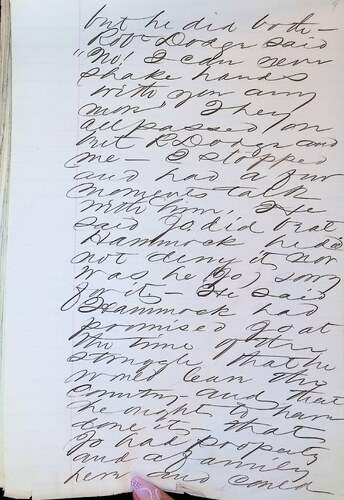 but he did both —
Rob Dodge said
"No! I can never
shake hands
with you any
more" They
all passed on
but R Dodge and
me — I stopped
and had a few
moments talk
with him. He
said Jo did beat
Hammock he did
not deny it nor
was he (Jo) sorry
for it — He said
Hammock had
promised Jo at
the time of the
struggle that he
would leave the
Country — and that
he ought to have
done it — that
Jo had property
and a family
here and could